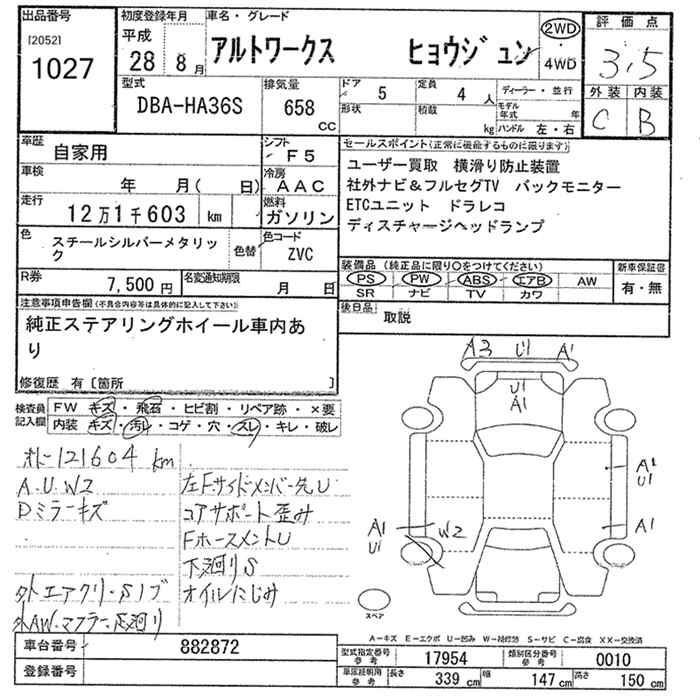 出品番号
[2052]
1027
初度登録年月
平成
28年8月
車名・グレード
アルトワークス ヒョウジュン
2WD
・
4WD
評価点
3.5
外装 内装
C B
型式
DBA-HA36S
排気量
658
CC
ドア
5
形状
定員
4人
積載
kg
ディーラー・並行
モデル年式 年
ハンドル 左・右
車歴
自家用
シフト
F5
車検
年 月( 日)
冷房
AAC
走行
12万1千603 km
燃料
ガソリン
色
スチールシルバーメタリック
色替
色コード
ZVC
R券
7,500円
名変通知期限
月 日
セールスポイント(正常に機能するものに限ります)
ユーザー買取 横滑り防止装置
社外ナビ&フルセグTV バックモニター
ETCユニット ドラレコ
ディスチャージヘッドランプ
装備品(純正品に限り○をつけてください)
PS PW ABS エアB AW
SR ナビ TV カワ
新車保証書
有・無
後日品
取説
注意事項申告欄(不具合内容等は具体的に記入して下さい)
純正ステアリングホイール車内あ
り
修復歴 有[箇所 ]
検査員
記入欄
FW キズ・飛石・ヒビ割・リペア跡・×要
内装 キズ・汚レ・コゲ・穴・スレ・キレ・破レ
オドー121604km
A.U.W2
Dミラーキズ
左Fサイドメンバー先U
コアサポート歪み
FホースメントU
下廻りS
外エアクリ・Sノブ オイルにじみ
外AW・マフラー・足廻り
A3 U1 A1
U1
A1
A1
U1
A1
U1
W2
A1
スペア
A-キズ E-エクボ U-凹み W-補修跡 S-サビ C-腐食 XX-交換済
車台番号
882872
登録番号
型式指定番号
参考
17954
類別区分番号
参考
0010
車庫証明用
参考
長さ 339 cm 幅 147 cm 高さ 150 cm